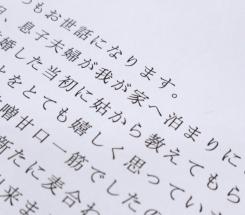 つもお世話になります。
日、息子夫婦が我が家へ泊まりに
婚した当初に姑から教えてもら
とをとても嬉しく思ってい
噌甘口一筋でしたの
新たに麦合わ
出来ま